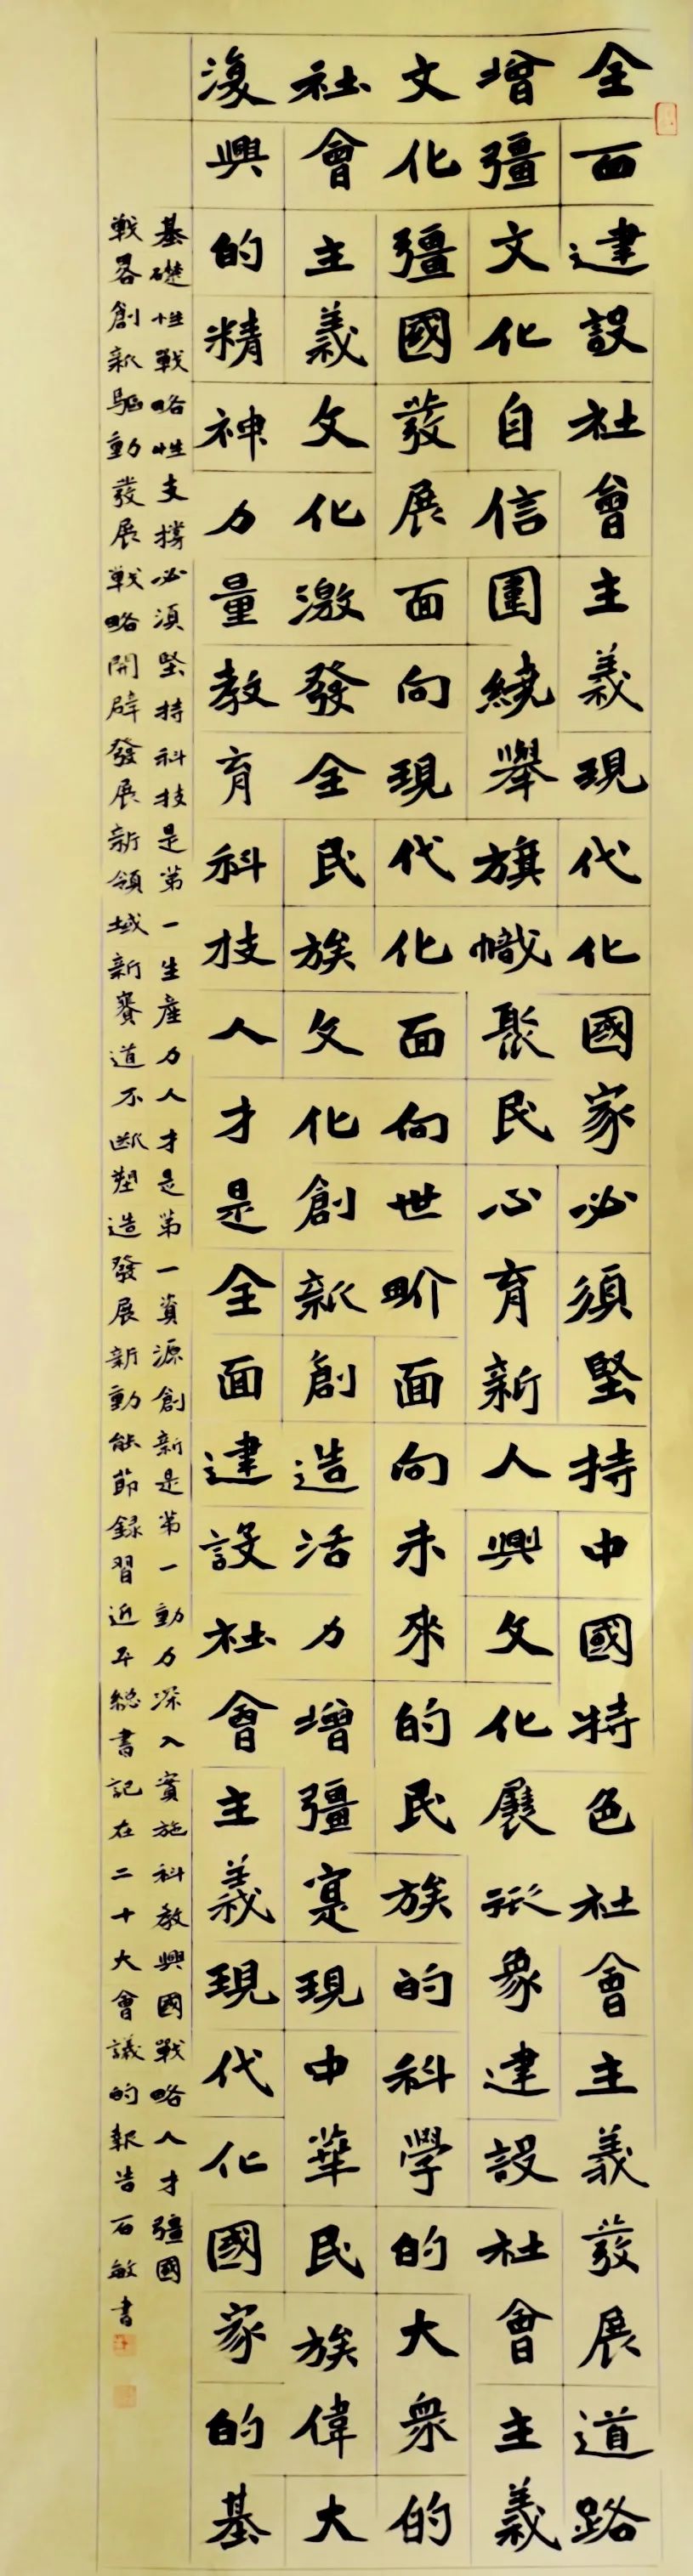 全面建設社會主義現代化國家必須堅持中國特色社會主義發展道路
增彊文化自信圍繞舉旗幟聚民心育新人興文化展形象建設社會主義
文化彊國發展面向現代化面向世畍面向未來的民族的科學的大衆的
社會主義文化激發全民族文化創新創造活力增彊寔現中華民族偉大
復興的精神力量教育科技人才是全面建設社會主義現代化國家的基
基礎性戰略性支撐必須堅持科技是第一生產力人才是第一資源創新是第一動力深入實施科教興國戰略人才彊國
戰畧創新驅動發展戰略開辟發展新領域新賽道不斷塑造發展新動能節録習近平總書記在二十大會議的報告石敏書